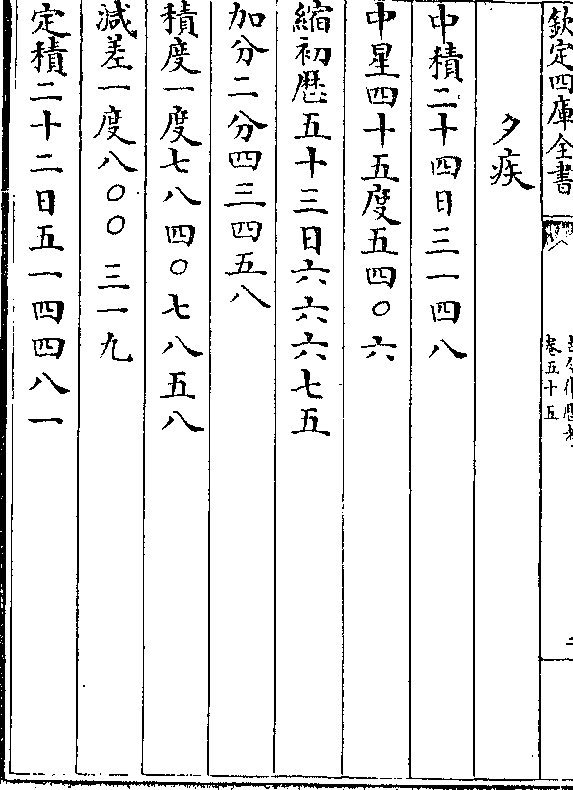 欽定四庫全書
卷五十五
夕疾
中積二十四日三一四八
中星四十五度五四〇六
縮初厯五十三日六六六七五
加分二分四三四五八
積度一度七八四〇七八五八
減差一度八〇〇三一九
定積二十二日五一四四八一